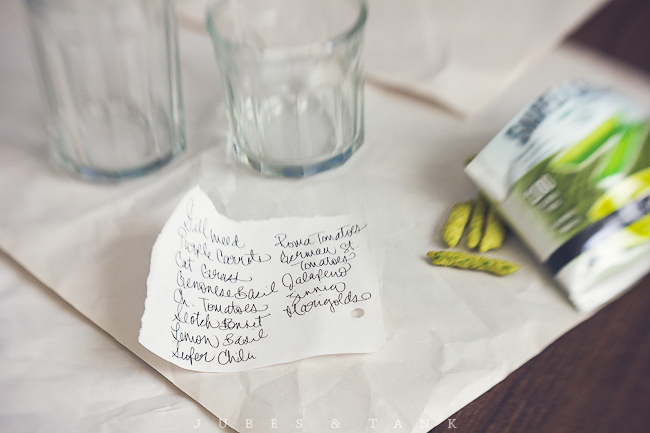 Dillweed
Purple Carrots
Cat Grass
Genonese Basil
Gr. Tomatoes
Scotch Bonnet
Lemon Basil
Super Chili
Roma Tomatoes
German St.
Tomatoes
Jalapeno
Zinnia
Marigolds
JUBES & TANK